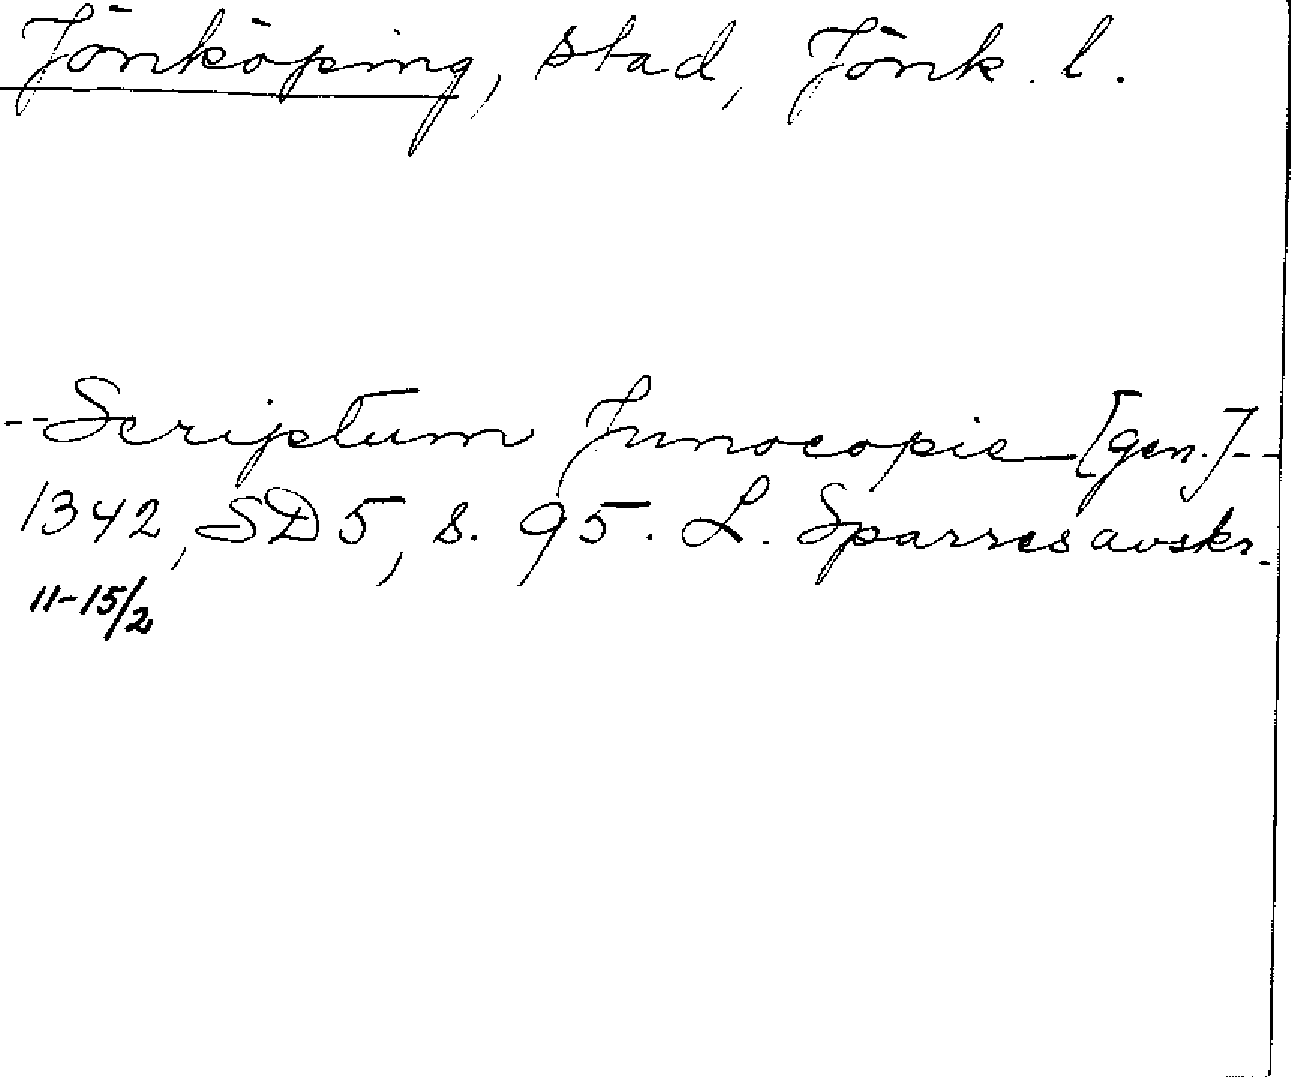 Jönköping, stad, Jönk. l.
-- Scriptum Junocopie [gen.] --
1342, SD 5, s. 95. L. Sparres avskr.
11-15/2